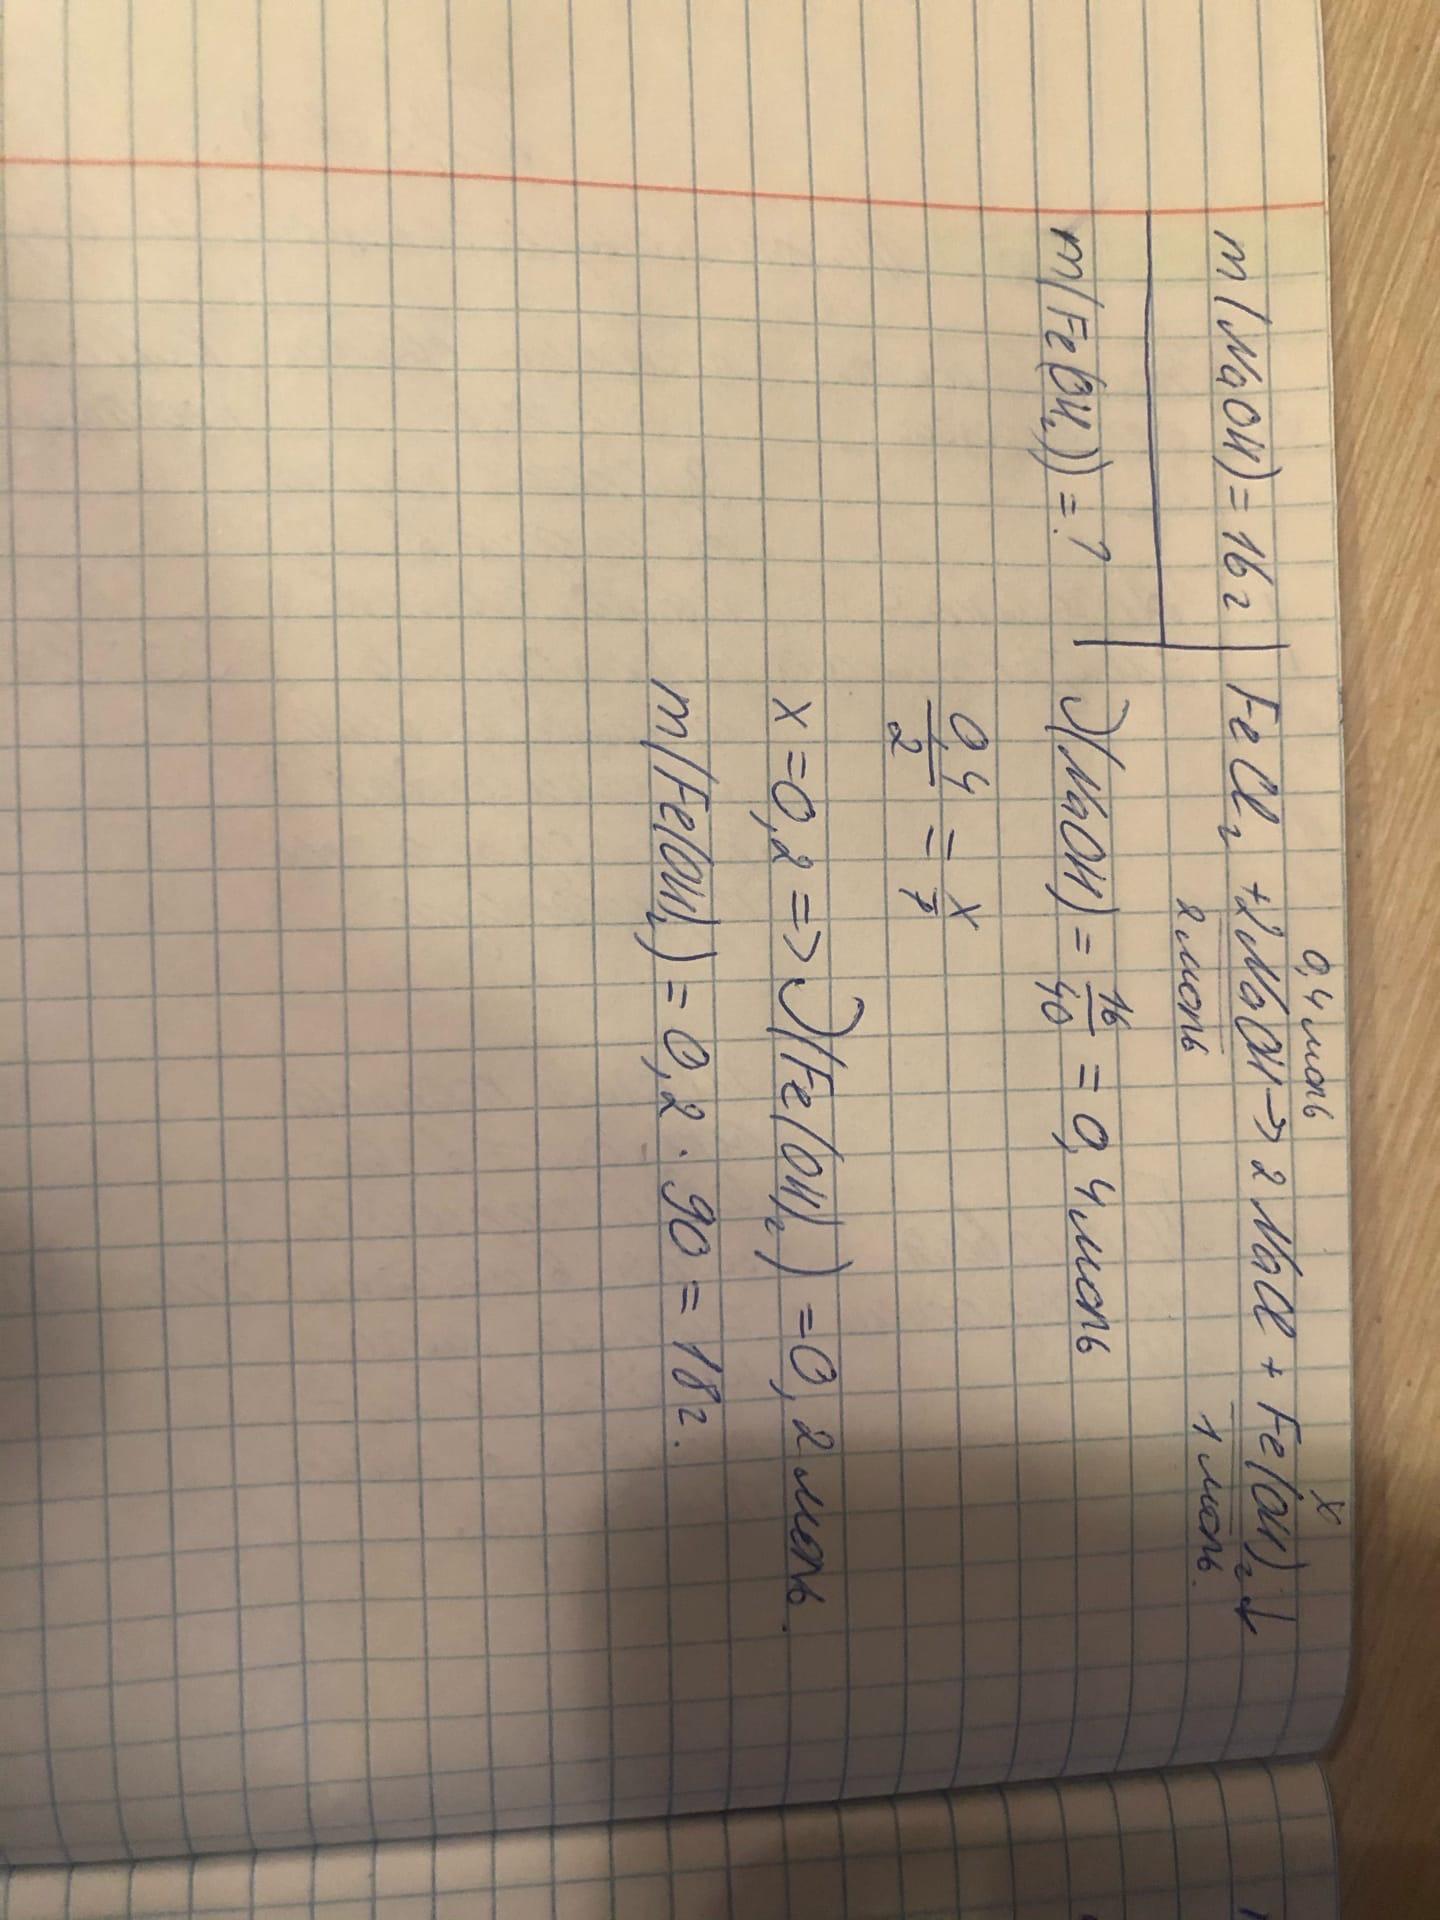 0,4 моль x
m(NaOH)=16г FeCl₂ + 2NaOH → 2NaCl + Fe(OH)₂↓
2 моль 1 моль.
m(Fe(OH₂))=? ν(NaOH) = 16/40 = 0,4 моль
0,4/2 = x/1
x=0,2 => ν(Fe(OH)₂) = 0,2 моль.
m(Fe(OH)₂) = 0,2 · 90 = 18г.